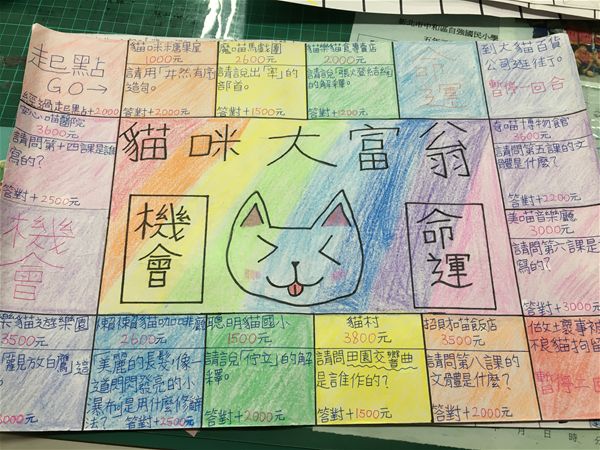 新北市中和區自強國民小學
起點
GO→
經過起點+2000
貓咪糖果屋
1000元
請用「井然有序」
造句。
答對+2000元
魔喵馬戲團
2600元
請說出「率」的
部首。
答對+1500元
貓樂貓食專賣店
2000元
的解釋。
答對+2000元
命運
到大貓百貨
公司逛街了。
暫停一回合
喵醫院
3600元
請問第十四課是誰
寫的?
答對+2500元
奇喵博物館
3600元
請問第五課的文
體是什麼?
答對+2200元
貓咪大富翁
機會
命運
機會
美喵音樂廳
3000元
請問第六課是
寫的?
答對+3000元
樂貓遊樂園
3500元
雁見放白鷹」這
3000元
懶懶貓咖啡廳
2600元
美麗的長髮像
一道閃閃發亮的小
瀑布」是用什麼修辭
法? 答對+2500元
聰明貓國小
1500元
請說「佇立」的解
釋。
答對+2000元
貓村
3800元
請問田園交響曲
是誰作的?
答對+1500元
招財喵飯店
3500元
請問第八課的
文體是什麼?
答對+2000元
做壞事被
不良貓拘留
暫停二回